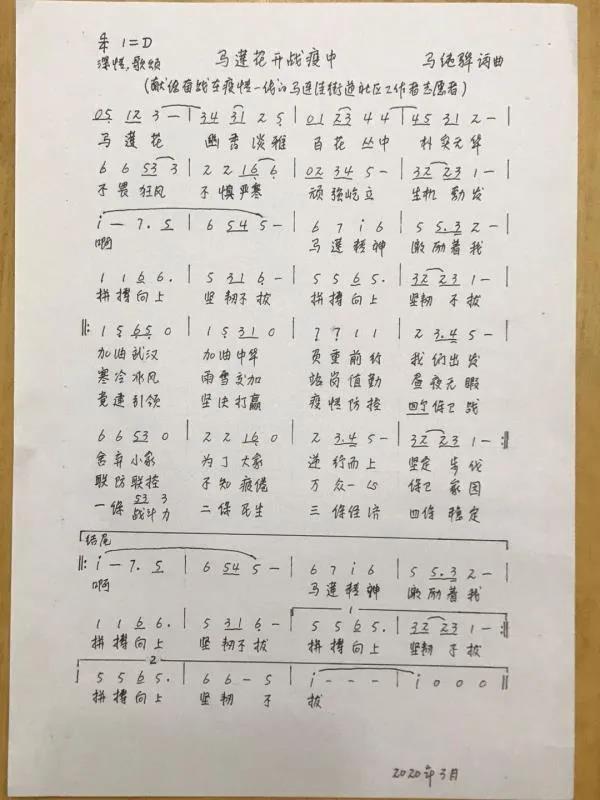 4/4 1=D
深情、歌颂 马莲花开战疫中 马绝辉 词曲
(献给奋战在疫情一线的马连洼街道社区工作者志愿者)
05 12 3 — | 34 31 2 5 | 01 23 4 4 | 45 31 2 — |
马莲花 幽香淡雅 百花丛中 朴实无华
6 6 53 3 | 2 2 16 6 | 02 34 5 — | 32 23 1 — |
不畏狂风 不惧严寒 顽强屹立 生机勃发
i — 7. 5 | 6 54 5 — | 6 7 i 6 | 5 5.3 2 — |
啊 马莲精神 激励着我
1 1 6 6. | 5 31 6 — | 5 5 6 5. | 32 23 1 — |
拼搏向上 坚韧不拔 拼搏向上 坚韧不拔
‖: 1 5 65 0 | 1 5 31 0 | 7 7 1 1 | 2 3.4 5 — |
加油武汉 加油中华 负重前行 我们出发
寒冷冰风 雨雪交加 站岗值勤 昼夜无暇
党建引领 坚决打赢 疫情防控 四个保卫战
6 6 53 0 | 2 2 16 0 | 2 3.4 5 — | 32 23 1 — :‖
舍弃小家 为了大家 逆行而上 坚定步伐
联防联控 不知疲倦 万众一心 保卫家园
53 3
一保战斗力 二保民生 三保经济 四保稳定
结尾
‖: i — 7. 5 | 6 54 5 — | 6 7 i 6 | 5 5.3 2 — |
啊 马莲精神 激励着我
1
1 1 6 6. | 5 31 6 — | 5 5 6 5. | 32 23 1 — :‖
拼搏向上 坚韧不拔 拼搏向上 坚韧不拔
2
5 5 6 5. | 6 6 — 5 | i — — — | i 0 0 0 ‖
拼搏向上 坚韧不 拔
2020年3月